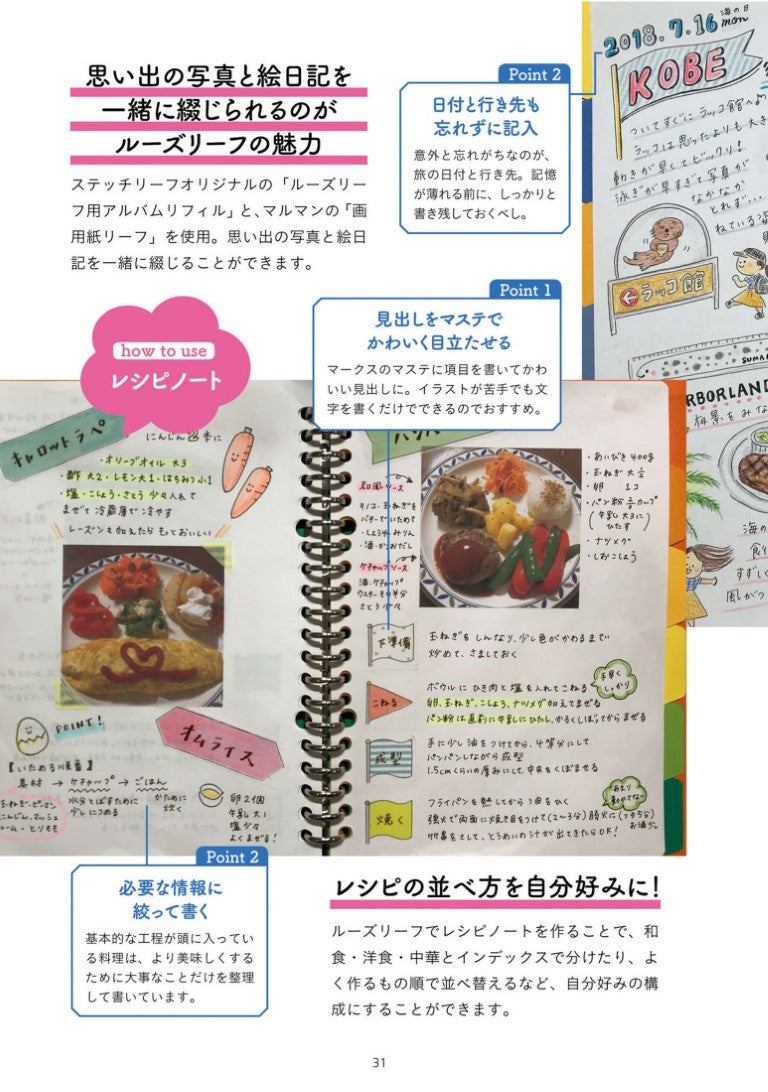 思い出の写真と絵日記を
一緒に綴じられるのが
ルーズリーフの魅力
ステッチリーフオリジナルの「ルーズリー
フ用アルバムリフィル」と、マルマンの「画
用紙リーフ」を使用。思い出の写真と絵日
記を一緒に綴じることができます。
Point 2
日付と行き先も
忘れずに記入
意外と忘れがちなのが、
旅の日付と行き先。記憶
が薄れる前に、しっかりと
書き残しておくべし。
2018.7.16
海の日
mon
KOBE
ついてすぐに ラッコ館へ
ラッコは思ったよりも大き
動きが早くてビックリ!
泳ぎが早すぎて写真が
なかなか
とれず…
ねている姿
ラッコ館
SUMA
RBORLAND
Point 1
見出しをマステで
かわいく目立たせる
マークスのマステに項目を書いてかわ
いい見出しに。イラストが苦手でも文
字を書くだけでできるのでおすすめ。
how to use
レシピノート
キャロットラペ
・オリーブオイル 大3
・酢 大2・レモン大1・はちみつ小1
・塩・こしょう・さとう 少々入れて
まぜて冷蔵庫で冷やす
レーズンも加えたら もっとおいしい
POINT!
オムライス
具材 → ケチャップ → ごはん
水分とばすために
少しにつめる
かために
炊く
卵2個
牛乳大1
塩少々
よくまぜる!
和風ソース
キノコ・玉ねぎを
バターでいためて
・しょうゆ・みりん
・酒・かつおだし
ケチャップソース
酒・ケチャップ
さとう少々
・あいびき 400g
・玉ねぎ 大
・卵 1コ
・パン粉
(牛乳 大3に
ひたす)
・ナツメグ
・しおこしょう
下準備
玉ねぎを しんなり、少し色がかわるまで
炒めて、さましておく
こねる
ボウルに ひき肉と 塩を入れてこねる
卵、玉ねぎ、こしょう、ナツメグ加えてまぜる
パン粉は直前に牛乳にひたし、かるくしぼってからまぜる
手早く
しっかり
成型
手に少し油をつけてから、4等分にして
パンパンしながら成型
1.5cmくらいの厚みにして、中央をくぼませる
焼く
フライパンを熱してから 油をひく
強火で両面に焼き目をつけて(2〜3分)弱火に
竹串をさして、とうめいの汁が出てきたらOK!
Point 2
必要な情報に
絞って書く
基本的な工程が頭に入ってい
る料理は、より美味しくする
ために大事なことだけを整理
して書いています。
レシピの並べ方を自分好みに!
ルーズリーフでレシピノートを作ることで、和
食・洋食・中華とインデックスで分けたり、よ
く作るもの順で並べ替えるなど、自分好みの構
成にすることができます。
31